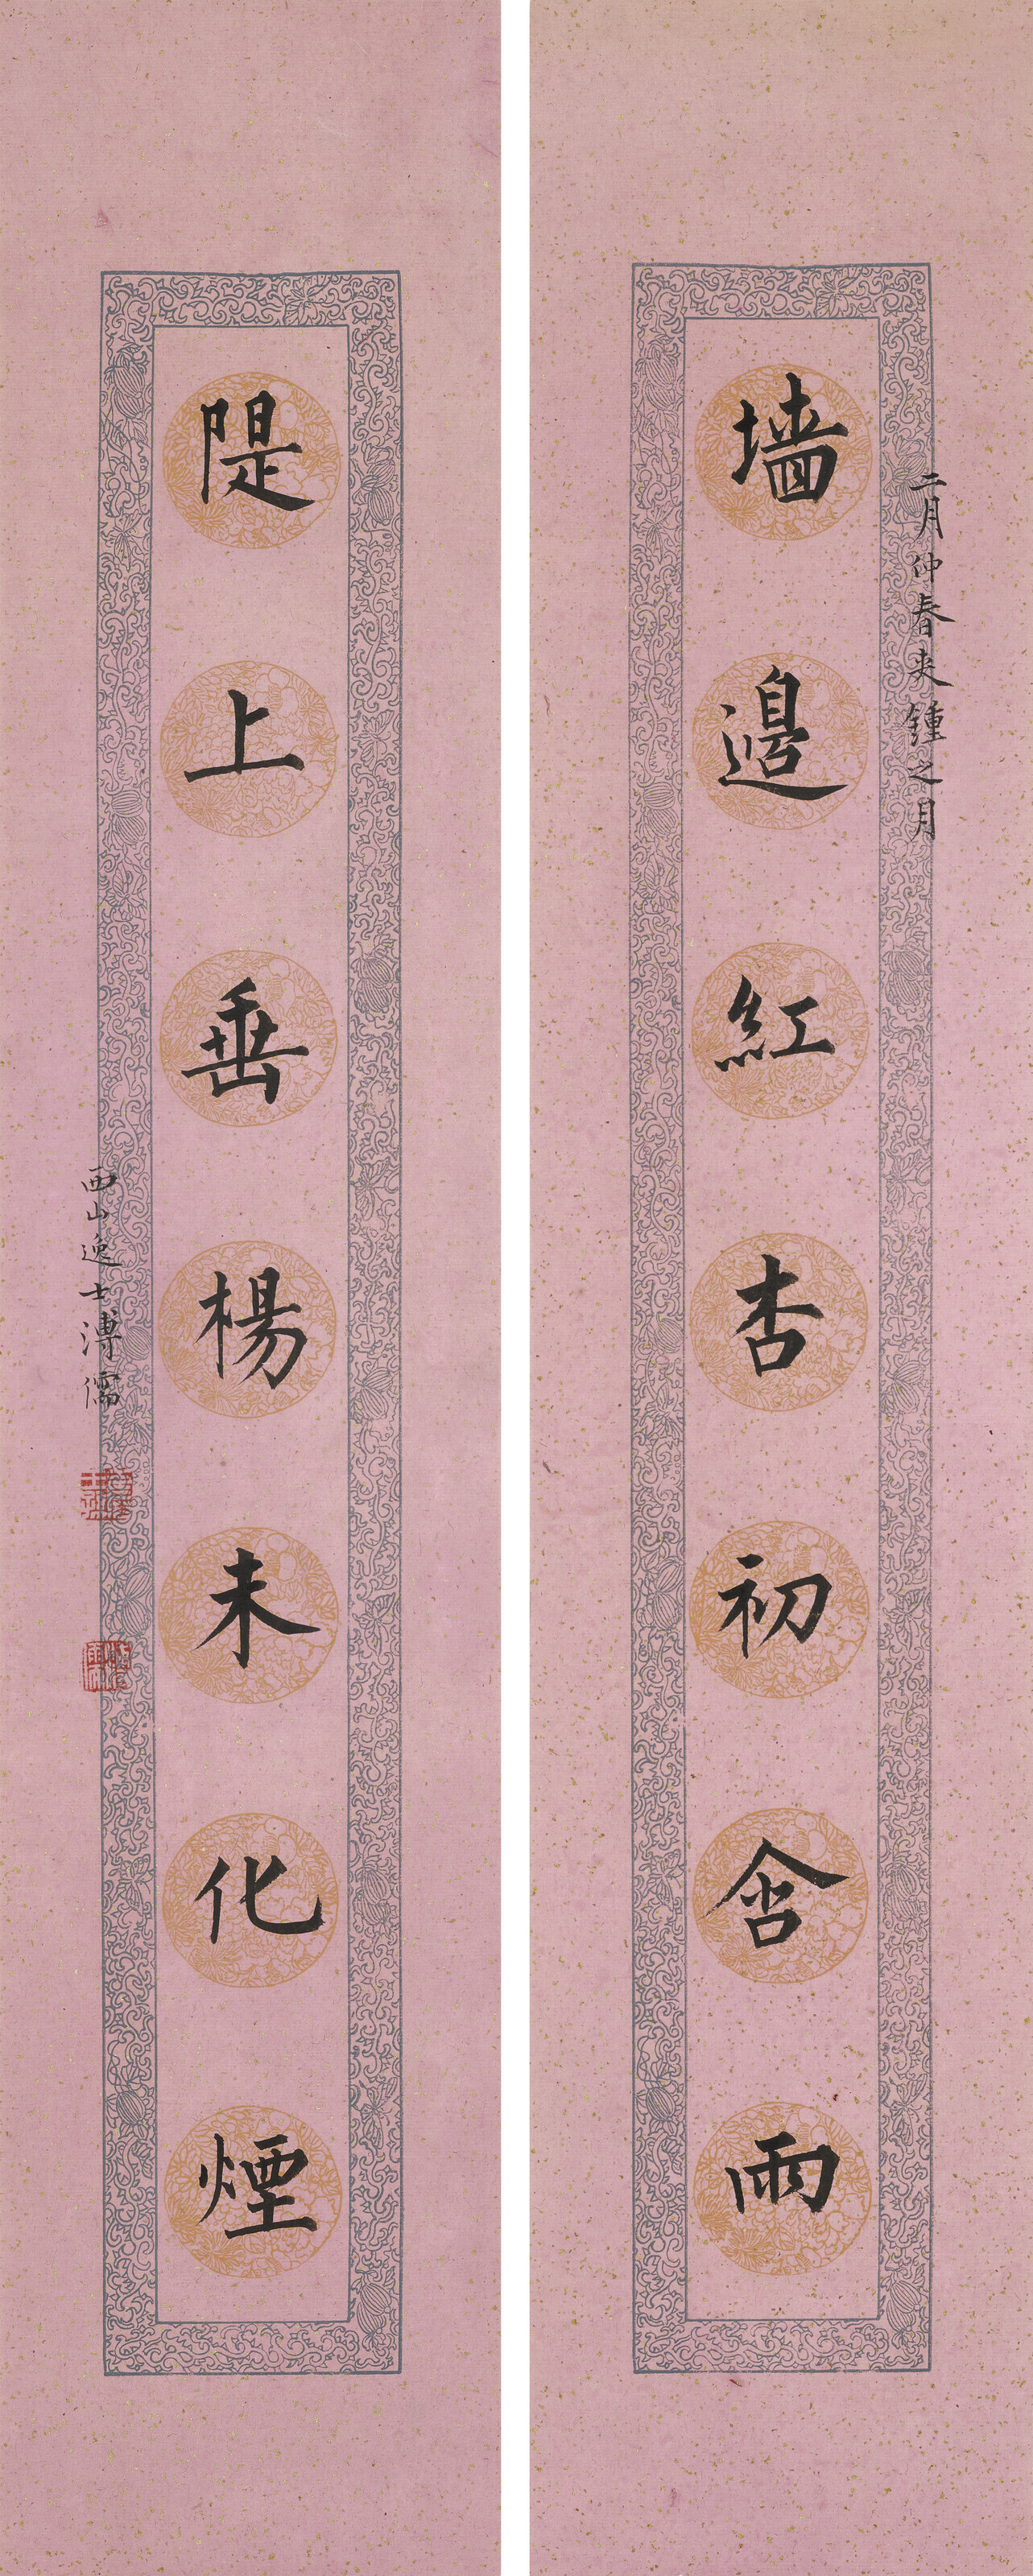 二月仲春夾鍾之月
墻邊紅杏初含雨
隄上垂楊未化煙
西山逸士溥儒